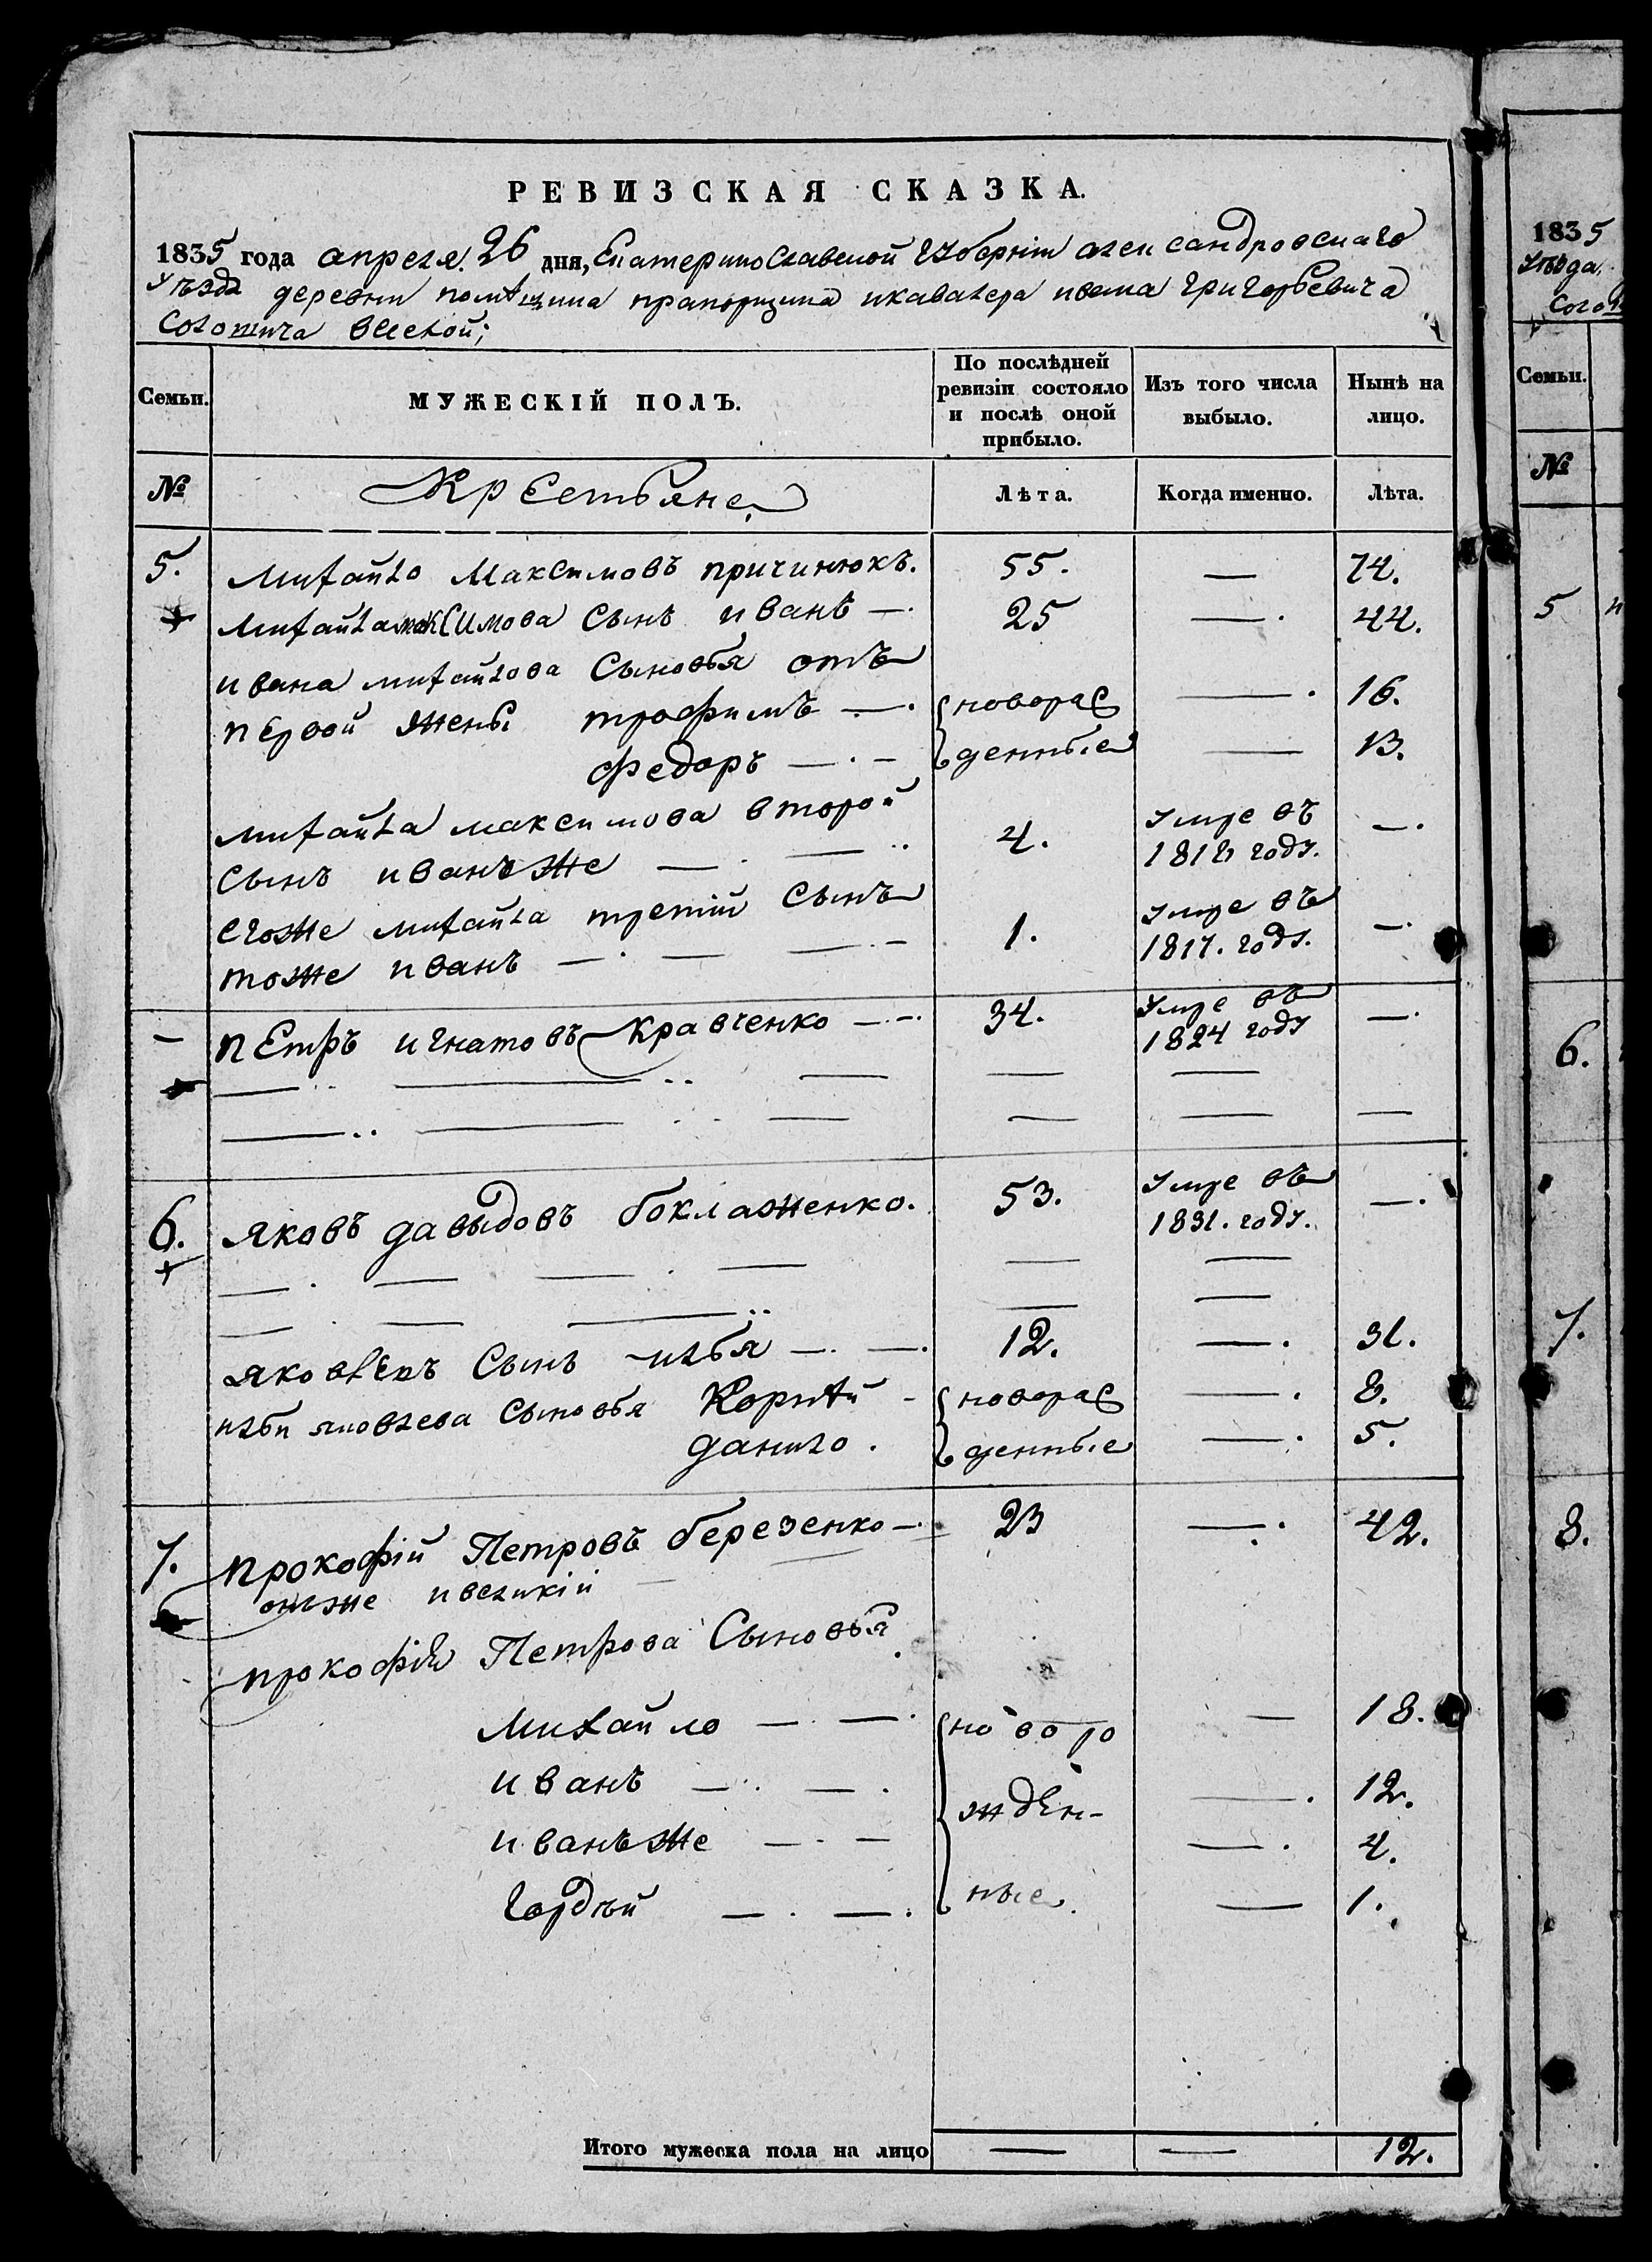 РЕВИЗСКАЯ СКАЗКА.
1835 года апреля. 26 дня, Екатеринославской губерніи александровскаго
уѣзда деревни помѣщика прапорщика икавалера ивана григорьевича
всиской;
Семьи.
МУЖЕСКІЙ ПОЛЪ.
По послѣдней ревизіи состояло и послѣ оной прибыло.
Изъ того числа выбыло.
Нынѣ на лицо.
№
Крестьяне
Лѣта.
Когда именно.
Лѣта.
5. Михайло Максимовъ причинюкъ. 55. — 74.
Михайла максимова Сынъ иванъ — 25 — 44.
ивана михайлова Сыновья отъ
первой жены трофимъ — новорас — 16.
федоръ — денные — 13.
михайла максимова второй
сынъ иванъже — 4. умре въ 1818 году. —
егоже михайла третій Сынъ
тоже иванъ — 1. умре въ 1817. году. —
— петръ игнатовъ кравченко — 34. умре въ 1824 году —
6. яковъ давыдовъ боклаженко. 53. умре въ 1831. году. —
яковлевъ Сынъ илья — 12. — 31.
ильи яковлева Сыновья Корнѣй - новорас — 8.
данило. денные — 5.
7. прокофій Петровъ березенко — 23 — 42.
онъже ивеликій
прокофія Петрова Сыновья
Михайло — новоро — 18.
иванъ — жден- — 12.
иванъже — — 4.
гордѣй — ные. — 1.
Итого мужеска пола на лицо — — 12.
1835
уѣзда
Семьи.
№
5
6.
7.
8.